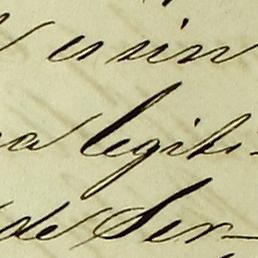 usin
a legiti-
de Ser-